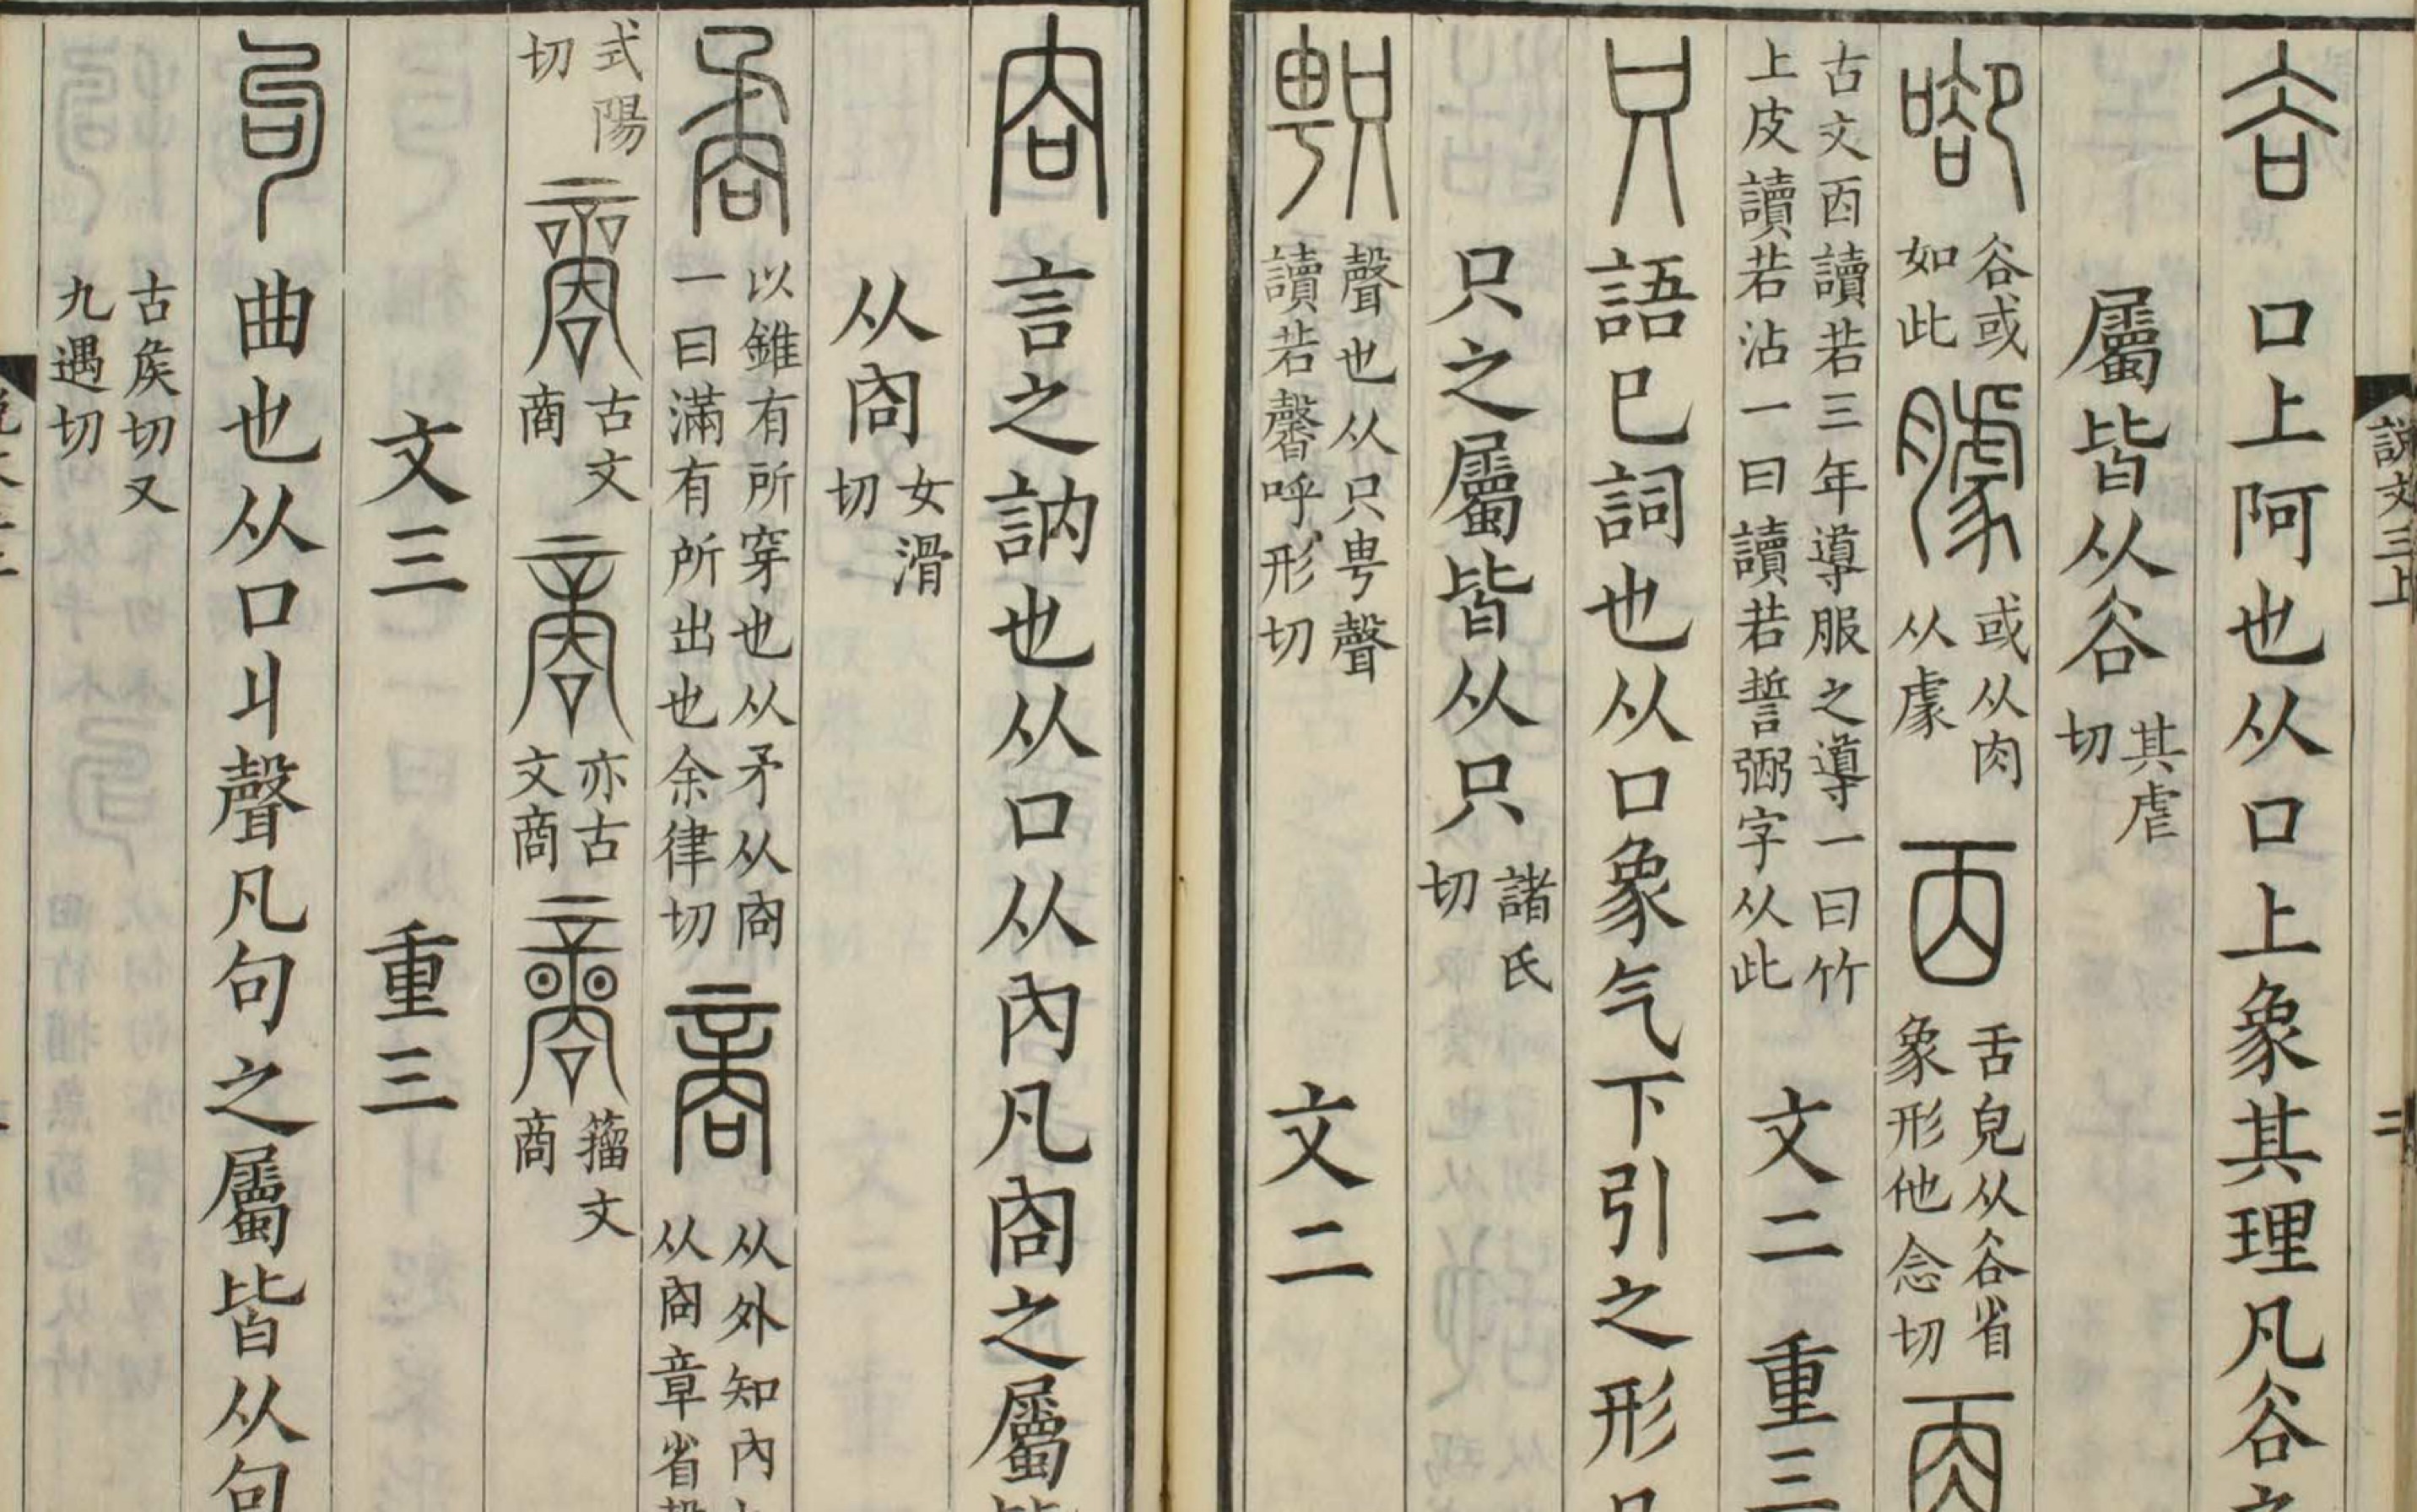 說文三上
二
𧮫 口上阿也从口上象其理凡𧮫
屬皆从𧮫 其虐切
𧮫或如此 或从肉从豦 㐁 舌皃从𧮫省象形他念切
古文㐁讀若三年導服之導一曰竹上皮讀若沾一曰讀若誓弼字从此 文二 重三
只 語巳詞也从口象气下引之形
只之屬皆从只 諸氏切
聲也从只甹聲讀若馨呼形切 文二
㕯 言之訥也从口从內凡㕯之屬
从㕯 女滑切
矞 以錐有所穿也从矛从㕯一曰滿有所出也余律切 商 从外知內 从㕯章省
式陽切 古文商 亦古文商 籀文商
文三 重三
句 曲也从口丩聲凡句之屬皆从句
古矦切又九遇切